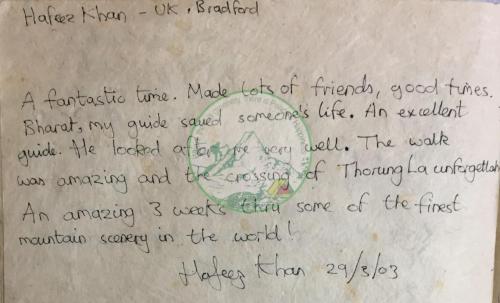 Hafeez Khan - UK, Bradford
A fantastic time. Made lots of friends, good times.
Bharat, my guide saved someone's life. An excellent
guide. He looked after me very well. The walk
was amazing and the crossing of Thorung La
An amazing 3 weeks thru some of the finest
mountain scenery in the world!
Hafeez Khan 29/3/03